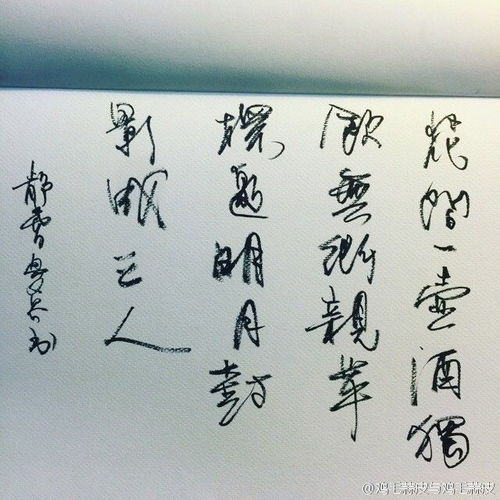 花間一壺酒獨
飲無所親舉
杯邀明月對
影成三人
@鸡毛蒜皮与鸡毛蒜皮